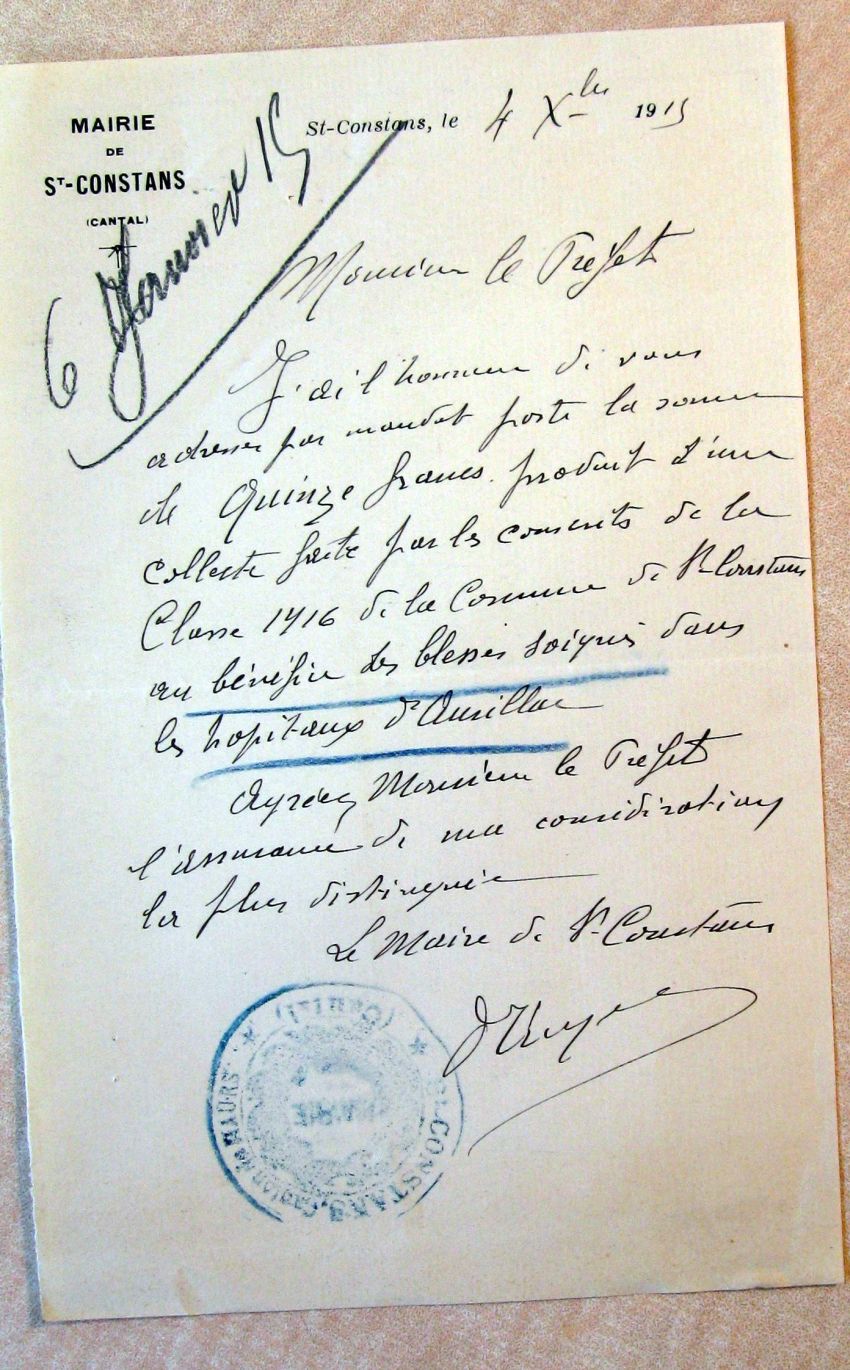 MAIRIE
DE
ST-CONSTANS
(CANTAL)
St-Constans, le 4 Xbre 1915
6 Janvier 15
Monsieur le Préfet
J'ai l'honneur de vous
adresser par mandat poste la somme
de Quinze francs produit d'une
collecte faite par les conscrits de la
Classe 1916 de la Commune de St-Constans
au bénéfice des blessés soignés dans
les hopitaux d'Aurillac
Agréez Monsieur le Préfet
l'assurance de ma considération
la plus distinguée
Le Maire de St-Constans
ST-CONSTANS Canton de MAURS (Cantal)
MAIRIE